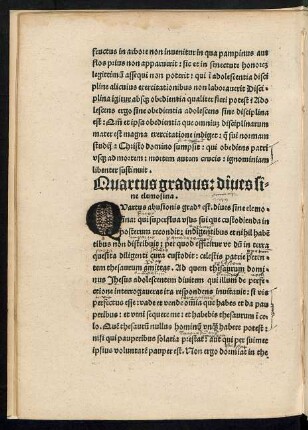 fructus in arbore non inuenitur in qua pampinus aut
flos prius non apparuerit : sic et in senectute honorē
legittimū assequi non poterit : qui ī adolescentia disci
pline alicuius exercitationibus non laborauerit Disci-
plina igitur absq̄ obedientia qualiter fieri potest? Ado
lescens ergo sine obedientia adolescens sine disciplina
est : Qm̄ et ipsa obedientia que omniuȝ disciplinarum
mater est magna exercitatione indiget : q̄ sui normam
studij a Christo domino sumpsit : qui obediens patri
vsq̄ ad mortem : mortem autem crucis : ignominiam
libenter sustinuit.
Quartus gradus: diues si-
ne elemosina.
Quartus abusionis gradꝰ est. diues sine elemo
sina: qui superflua vsus sui que custodienda in
posterum recondit: indigentibus et nihil habēn
tibus non distribuit : per quod efficitur vt dū in terra
quesita diligenti cura custodit : celestis patrie peren-
nem thesaurum amittat. Ad quem thesaurum domi-
nus Ihesus adolescentem diuitem qui illum de perfe-
ctione interrogauerat ita respondens inuitauit : si vis
perfectus esse : vade et vende omnia que habes et da pau
peribus : et veni sequere me : et habebis thesaurum ī ce
lo. Quē thesaurū nullus hominū vnq̄ habere potest :
nisi qui pauperibus solatia prestat : aut qui per suimet
ipsius voluntatē pauper est. Non ergo dormiat in the